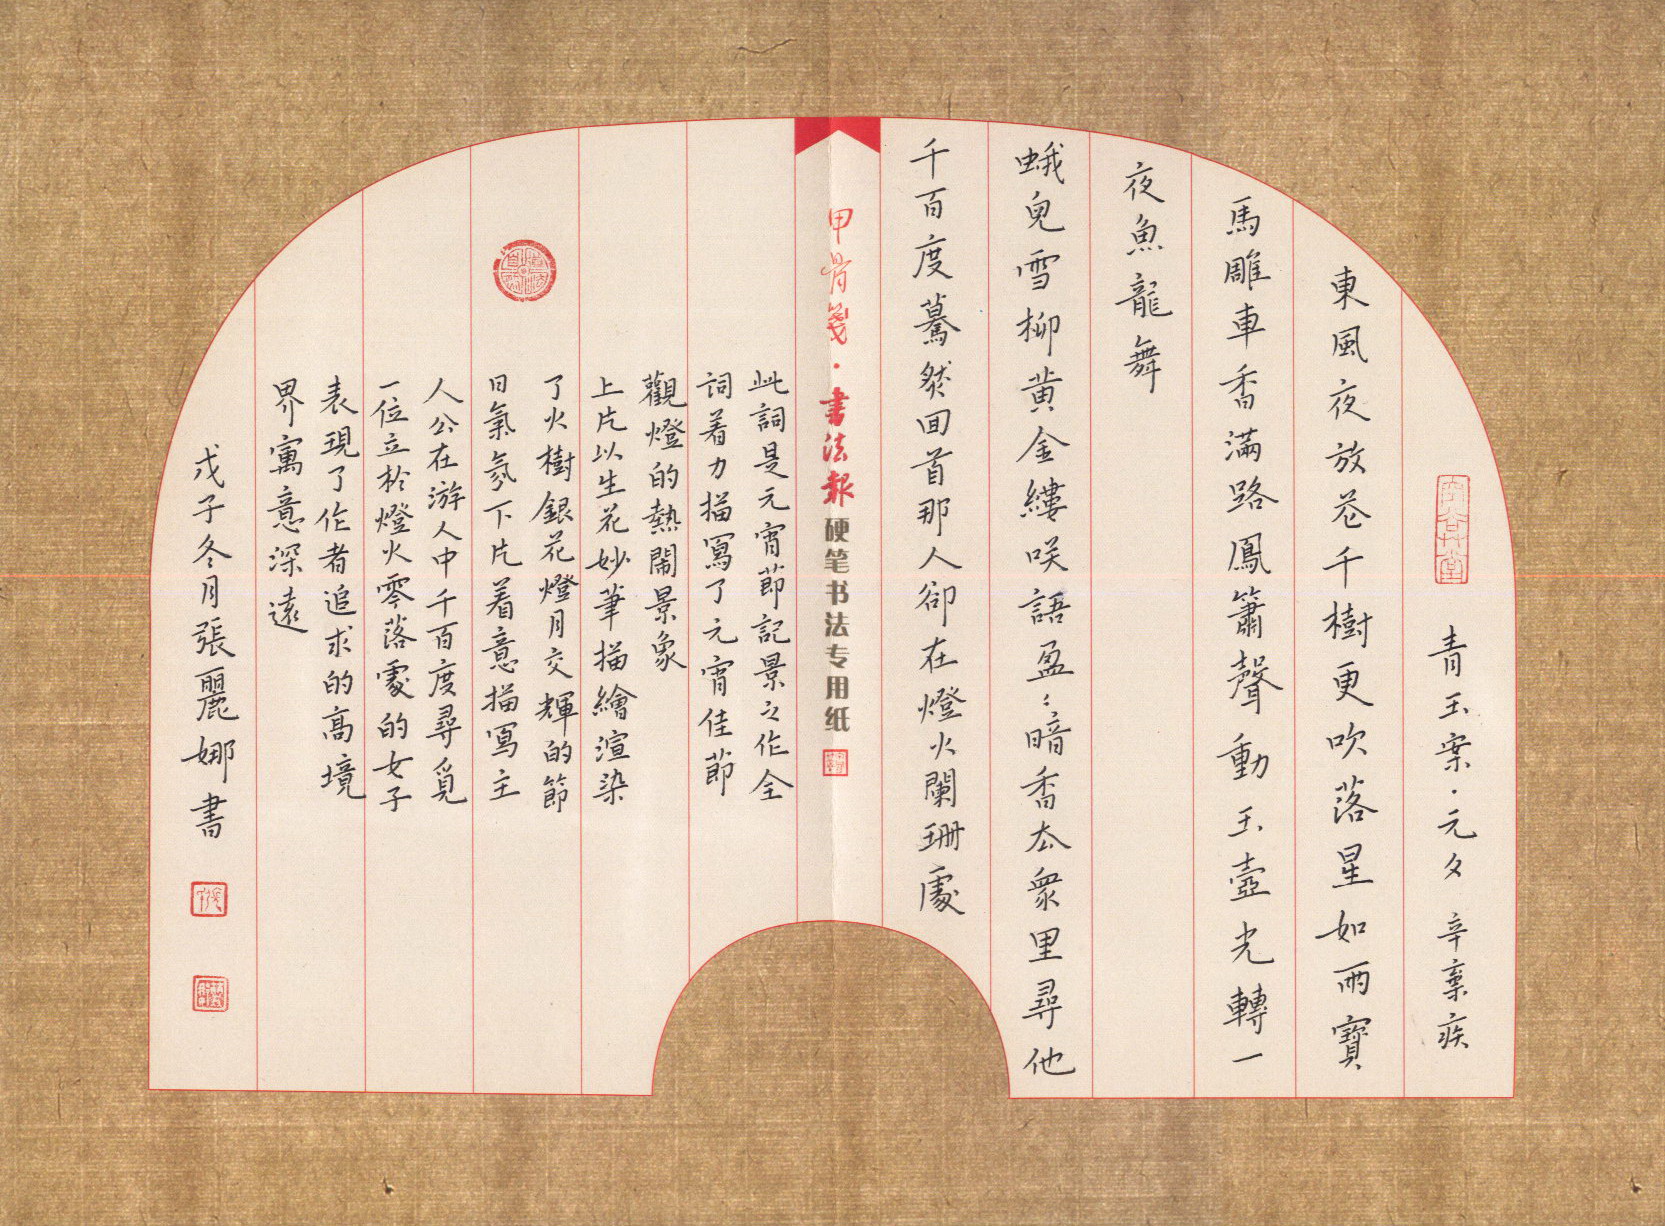 青玉案·元夕 辛棄疾
東風夜放花千樹更吹落星如雨寶
馬雕車香滿路鳳簫聲動玉壺光轉一
夜魚龍舞
蛾兒雪柳黄金縷咲語盈〻暗香去衆里尋他
千百度驀然回首那人卻在燈火闌珊處
甲骨箋·書法報硬笔书法专用纸
此詞是元宵節記景之作全
詞着力描寫了元宵佳節
觀燈的熱鬧景象
上片以生花妙筆描繪渲染
了火樹銀花燈月交輝的節
日氣氛下片着意描寫主
人公在游人中千百度尋覓
一位立於燈火零落處的女子
表現了作者追求的高境
界寓意深遠
戊子冬月張麗娜書